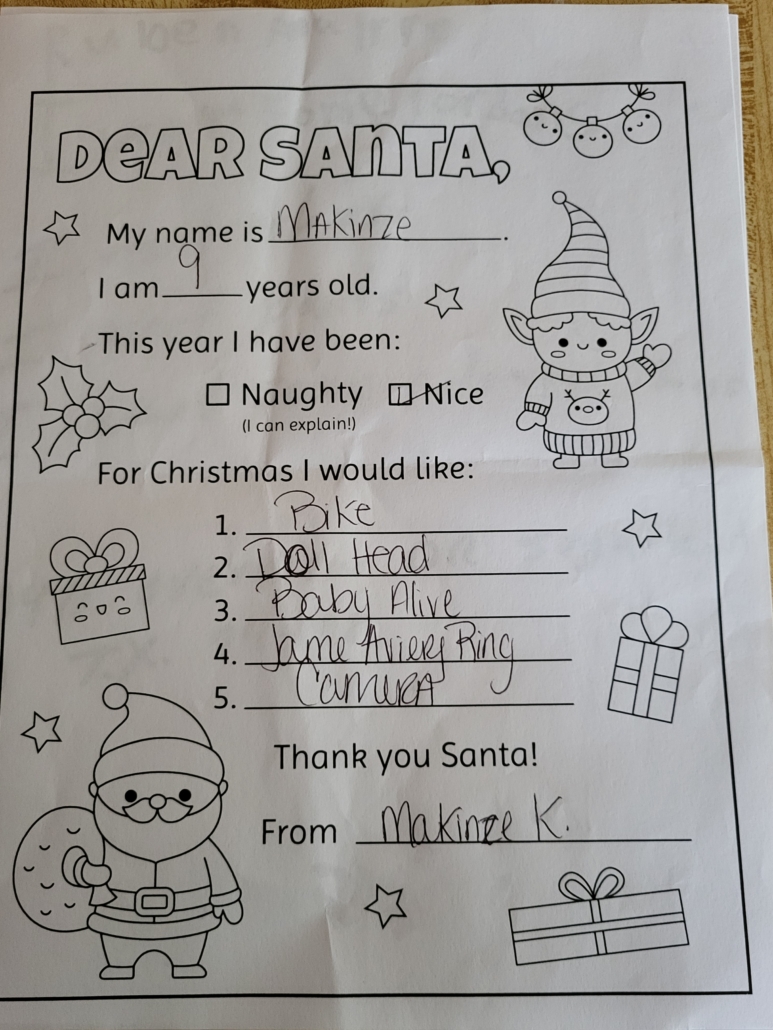 DeAR SANTA,
My name is MAKinze.
I am 9 years old.
This year I have been:
Naughty Nice
(I can explain!)
For Christmas I would like:
1. Bike
2. Doll Head
3. Baby Alive
4. Jame Aviery Ring
5. CamerA
Thank you Santa!
From Makinze K.